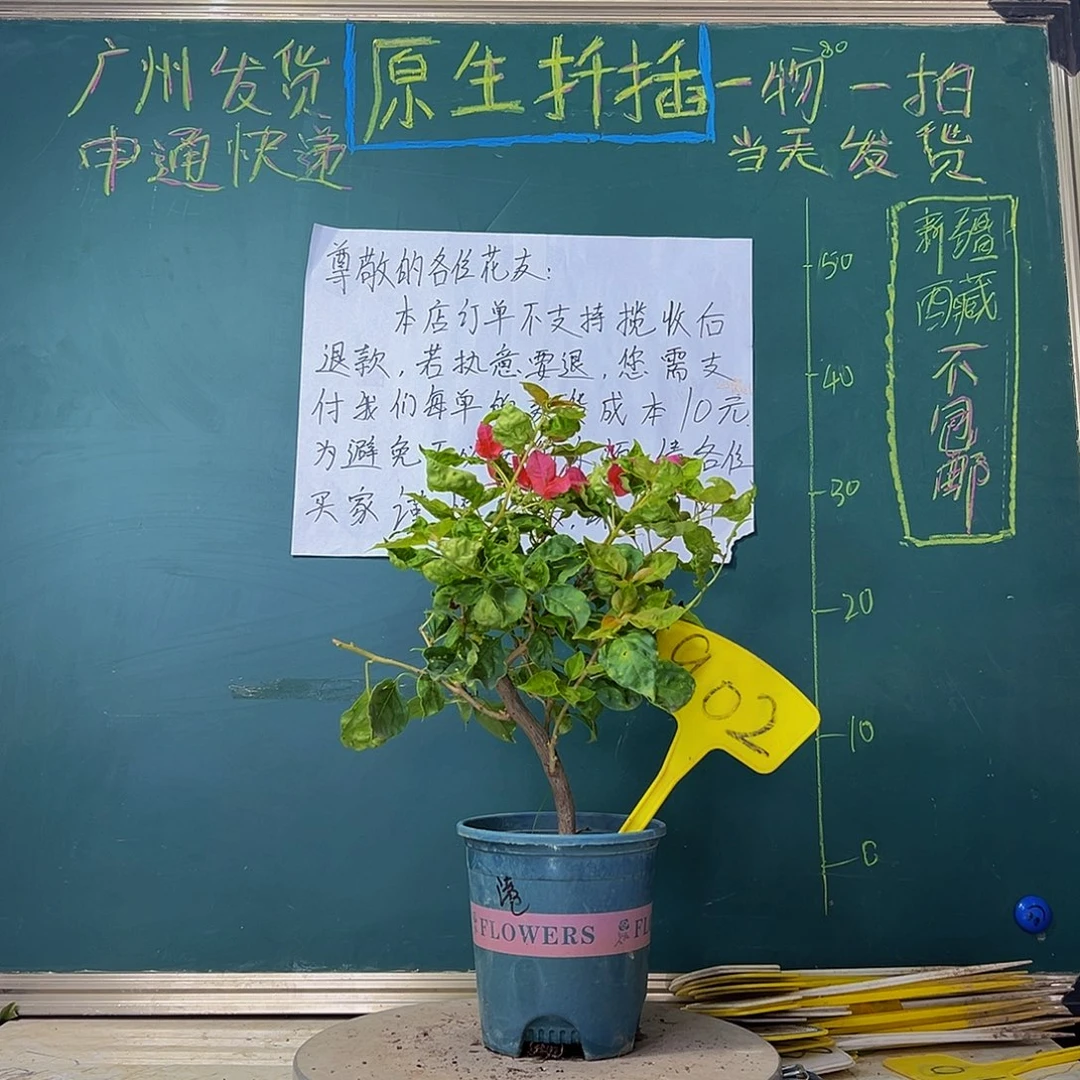 广州发货
申通快递
原生扦插
一物一拍
80
当天发货
新疆
西藏
不
包
邮
尊敬的各位花友:
本店订单不支持揽收后
退款,若执意要退,您需支
付我们每单的 成本10元
为避免 各位
买家
50
40
30
20
10
0
902
港
FLOWERS
FL